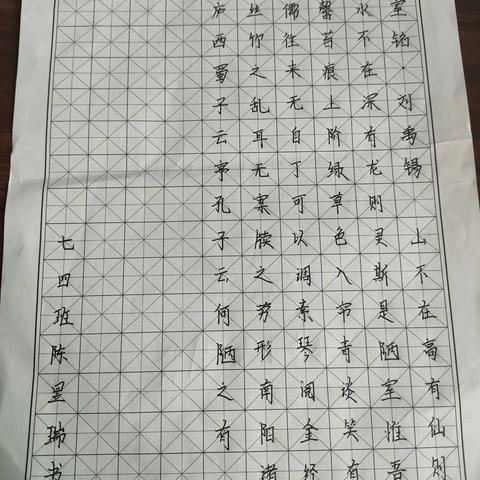 室铭·刘禹锡 山不在高有仙则
水不在深有龙则灵斯是陋室惟吾
馨苔痕上阶绿草色入帘青谈笑有
儒往来无自丁可以调素琴阅金经
丝竹之乱耳无案牍之劳形南阳诸
庐西蜀子云亭孔子云何陋之有
七四班陈星瑞书